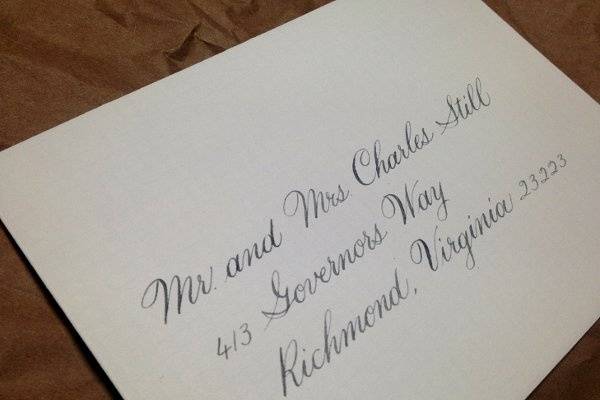 Mr. and Mrs. Charles Still
413 Governors Way
Richmond, Virginia 23223